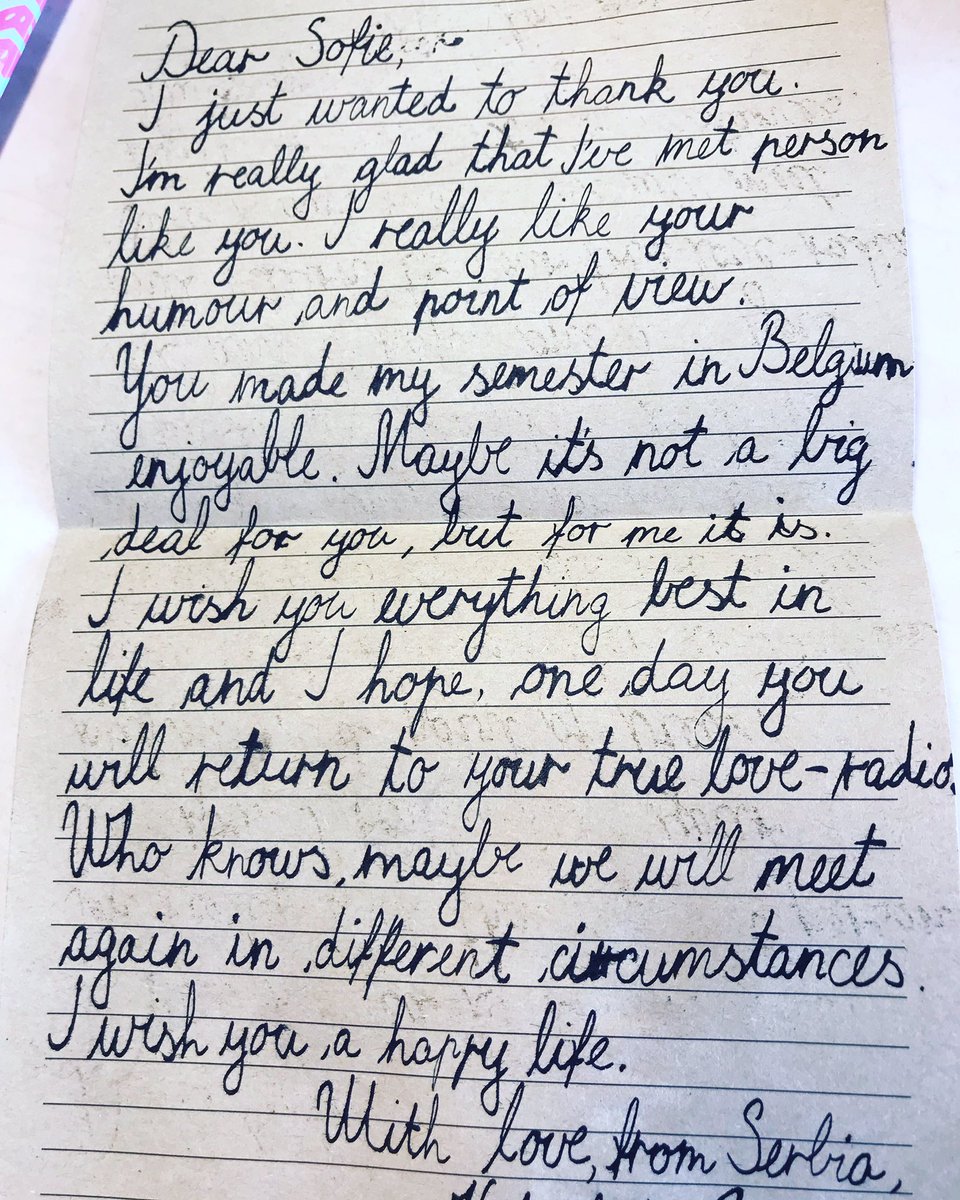 Dear Sofie,
I just wanted to thank you.
I'm really glad that I've met person
like you. I really like your
humour and point of view.
You made my semester in Belgium
enjoyable. Maybe it's not a big
deal for you, but for me it is.
I wish you everything best in
life and I hope, one day you
will return to your true love-radio.
Who knows, maybe we will meet
again in different circumstances.
I wish you a happy life.
With love, from Serbia,